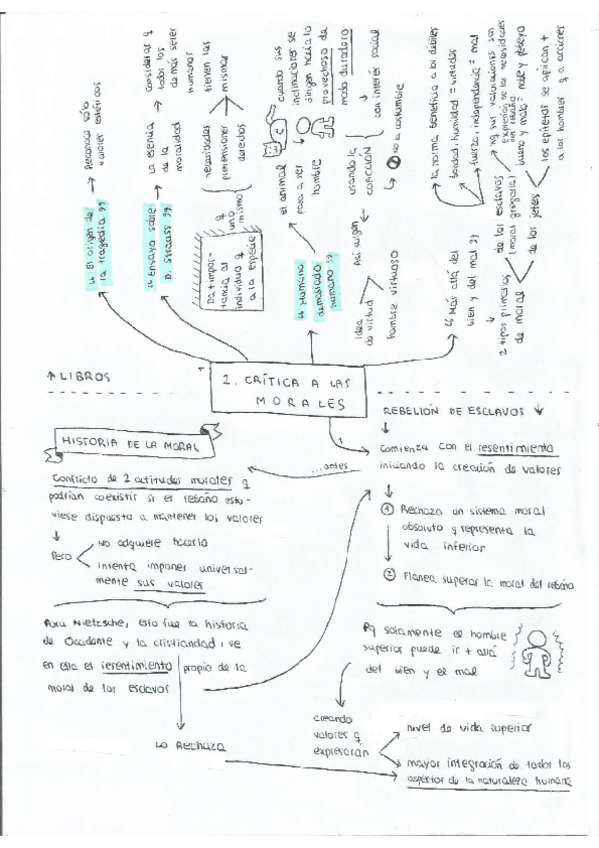 "El origen de
la tragedia"
Reconoce sólo
valores estéticos
"Ensayo sobre
D. Strauss"
La esencia
de la
moralidad
considerar q
todos los
demás seres
humanos
tienen las
mismas
necesidades
pretensiones
derechos
q
uno
mismo
Da + impor-
tancia al
individuo q
a la especie
"Humano
demasiado
humano"
el animal
pasa a ser
hombre
cuando sus
inclinaciones se
dirigen hacia lo
provechoso de
modo duradero
con interés social
No la costumbre
usando la
COACCIÓN
Así surgen
Idea
de virtud
hombre virtuoso
"Más allá del
bien y del mal"
2 tipos primarios
de moral
de los esclavos
(moral gregaria)
de los jefes
la norma beneficia a los débiles
bondad, humildad = virtudes
fuerza, independencia = mal
xq sus valoraciones son
expresión de las necesidades
del rebaño
bueno y malo = noble y plebeyo
los epítetos se aplican +
a los hombres q a acciones
↑ LIBROS
2. CRÍTICA A LAS
MORALES
REBELIÓN DE ESCLAVOS ↓
HISTORIA DE LA MORAL
Comienza con el resentimiento
iniciando la creación de valores
...antes
Conflicto de 2 actitudes morales q
podrían coexistir si el rebaño estu-
viese dispuesto a mantener los valores
Pero
no adquiere hacerlo
intenta imponer universal-
mente sus valores
1 Rechaza un sistema moral
absoluto y representa la
vida inferior
2 Planea superar la moral del rebaño
Para Nietzsche, esta fue la historia
de Occidente y la cristiandad, ve
en ella el resentimiento propio de la
moral de los esclavos
Lo Rechaza
Pq solamente el hombre
superior puede ir + allá
del bien y el mal
creando
valores q
expresarán
nivel de vida superior
mayor integración de todos los
aspectos de la naturaleza humana